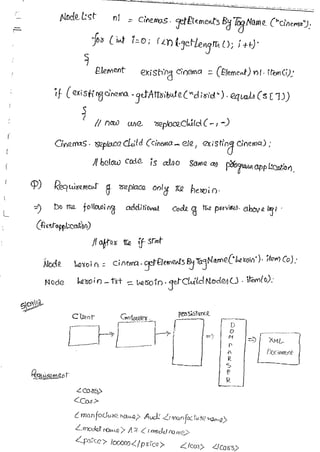 NodeList nl = Cinemas.getElementsByTagName("cinema");
for (int i=0; i<nl.getLength(); i++)
{
Element existing cinema = (Element) nl.item(i);
if (existing cinema.getAttribute("disid").equals(s[7])
{
// now use replaceChild(-,-)
Cinemas.replaceChild(cinema-ele, existing cinema);
// below code is also same as program application.
Q) Requirement of replace only the heroin.
=> Do the following additional code of the previous above
(first application)
// after the if stmt
Node heroin = cinema.getElementsByTagName("heroin").item(0);
Node heroin-txt = heroin.getChildNodes().item(0);
Client Controller persistence
DOM PARSER
XML Document
Requirement
<cars>
<car>
<manfacture name> Audi </manfacture name>
<model name> A2 </model name>
<price> 100000 </price> </car> </cars>